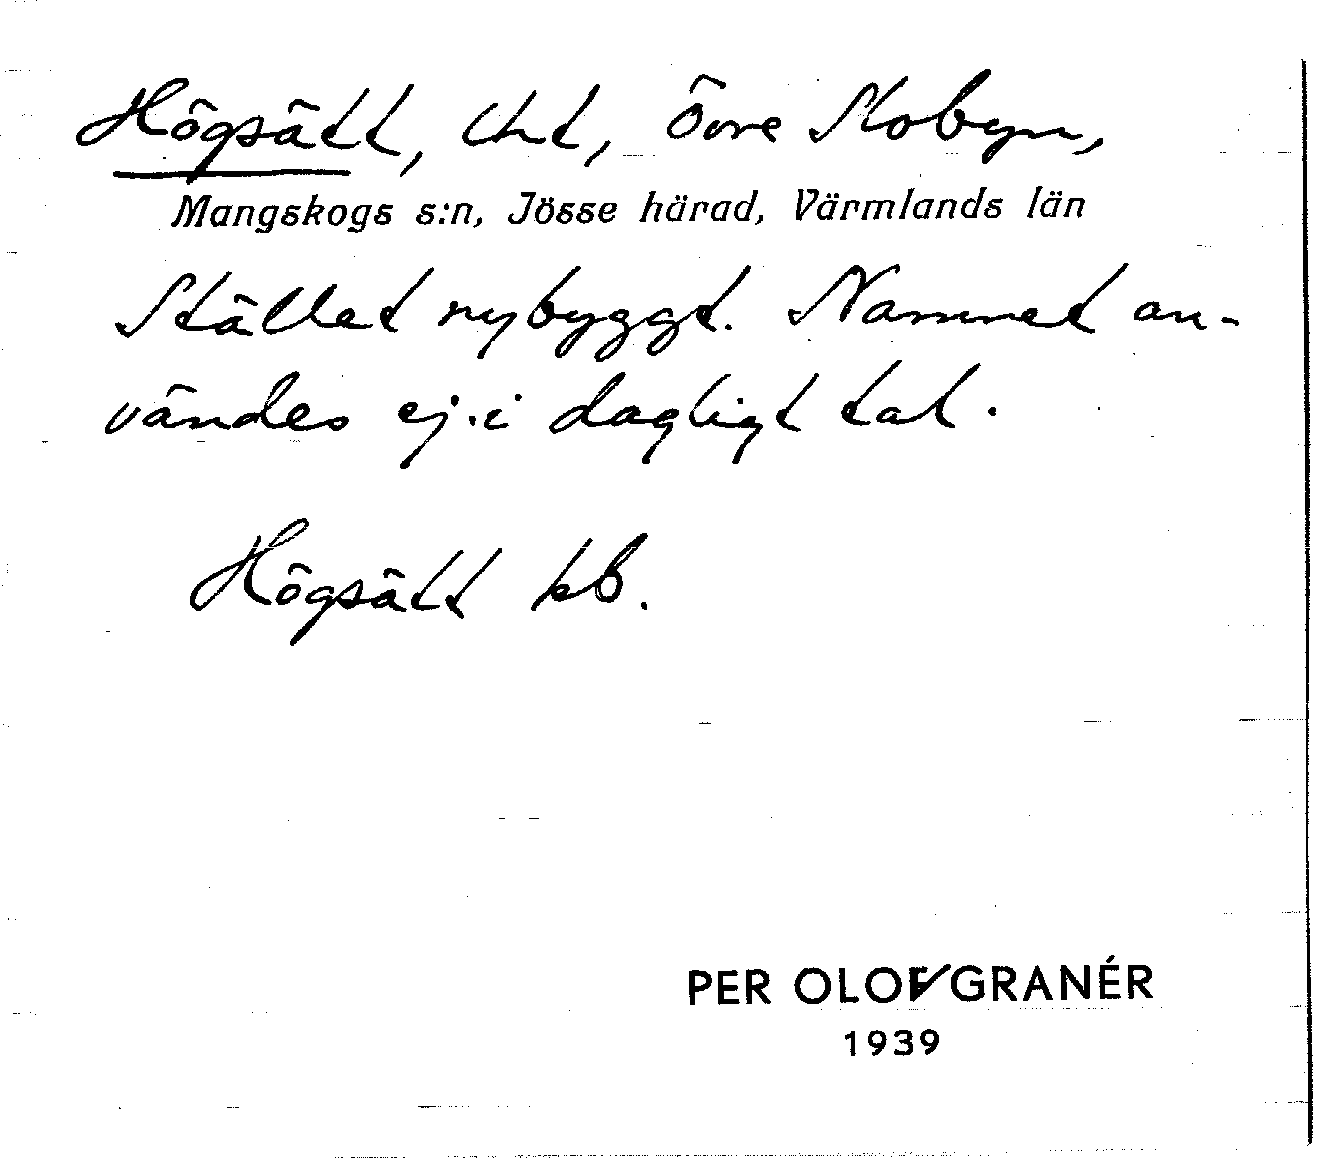 Högsätt, tht, Övre Skobyn,
Mangskogs s:n, Jösse härad, Värmlands län
Stället nybyggt. Namnet an-
vändes ej i dagligt tal.
Högsätt kb.
PER OLOF GRANÉR
1939